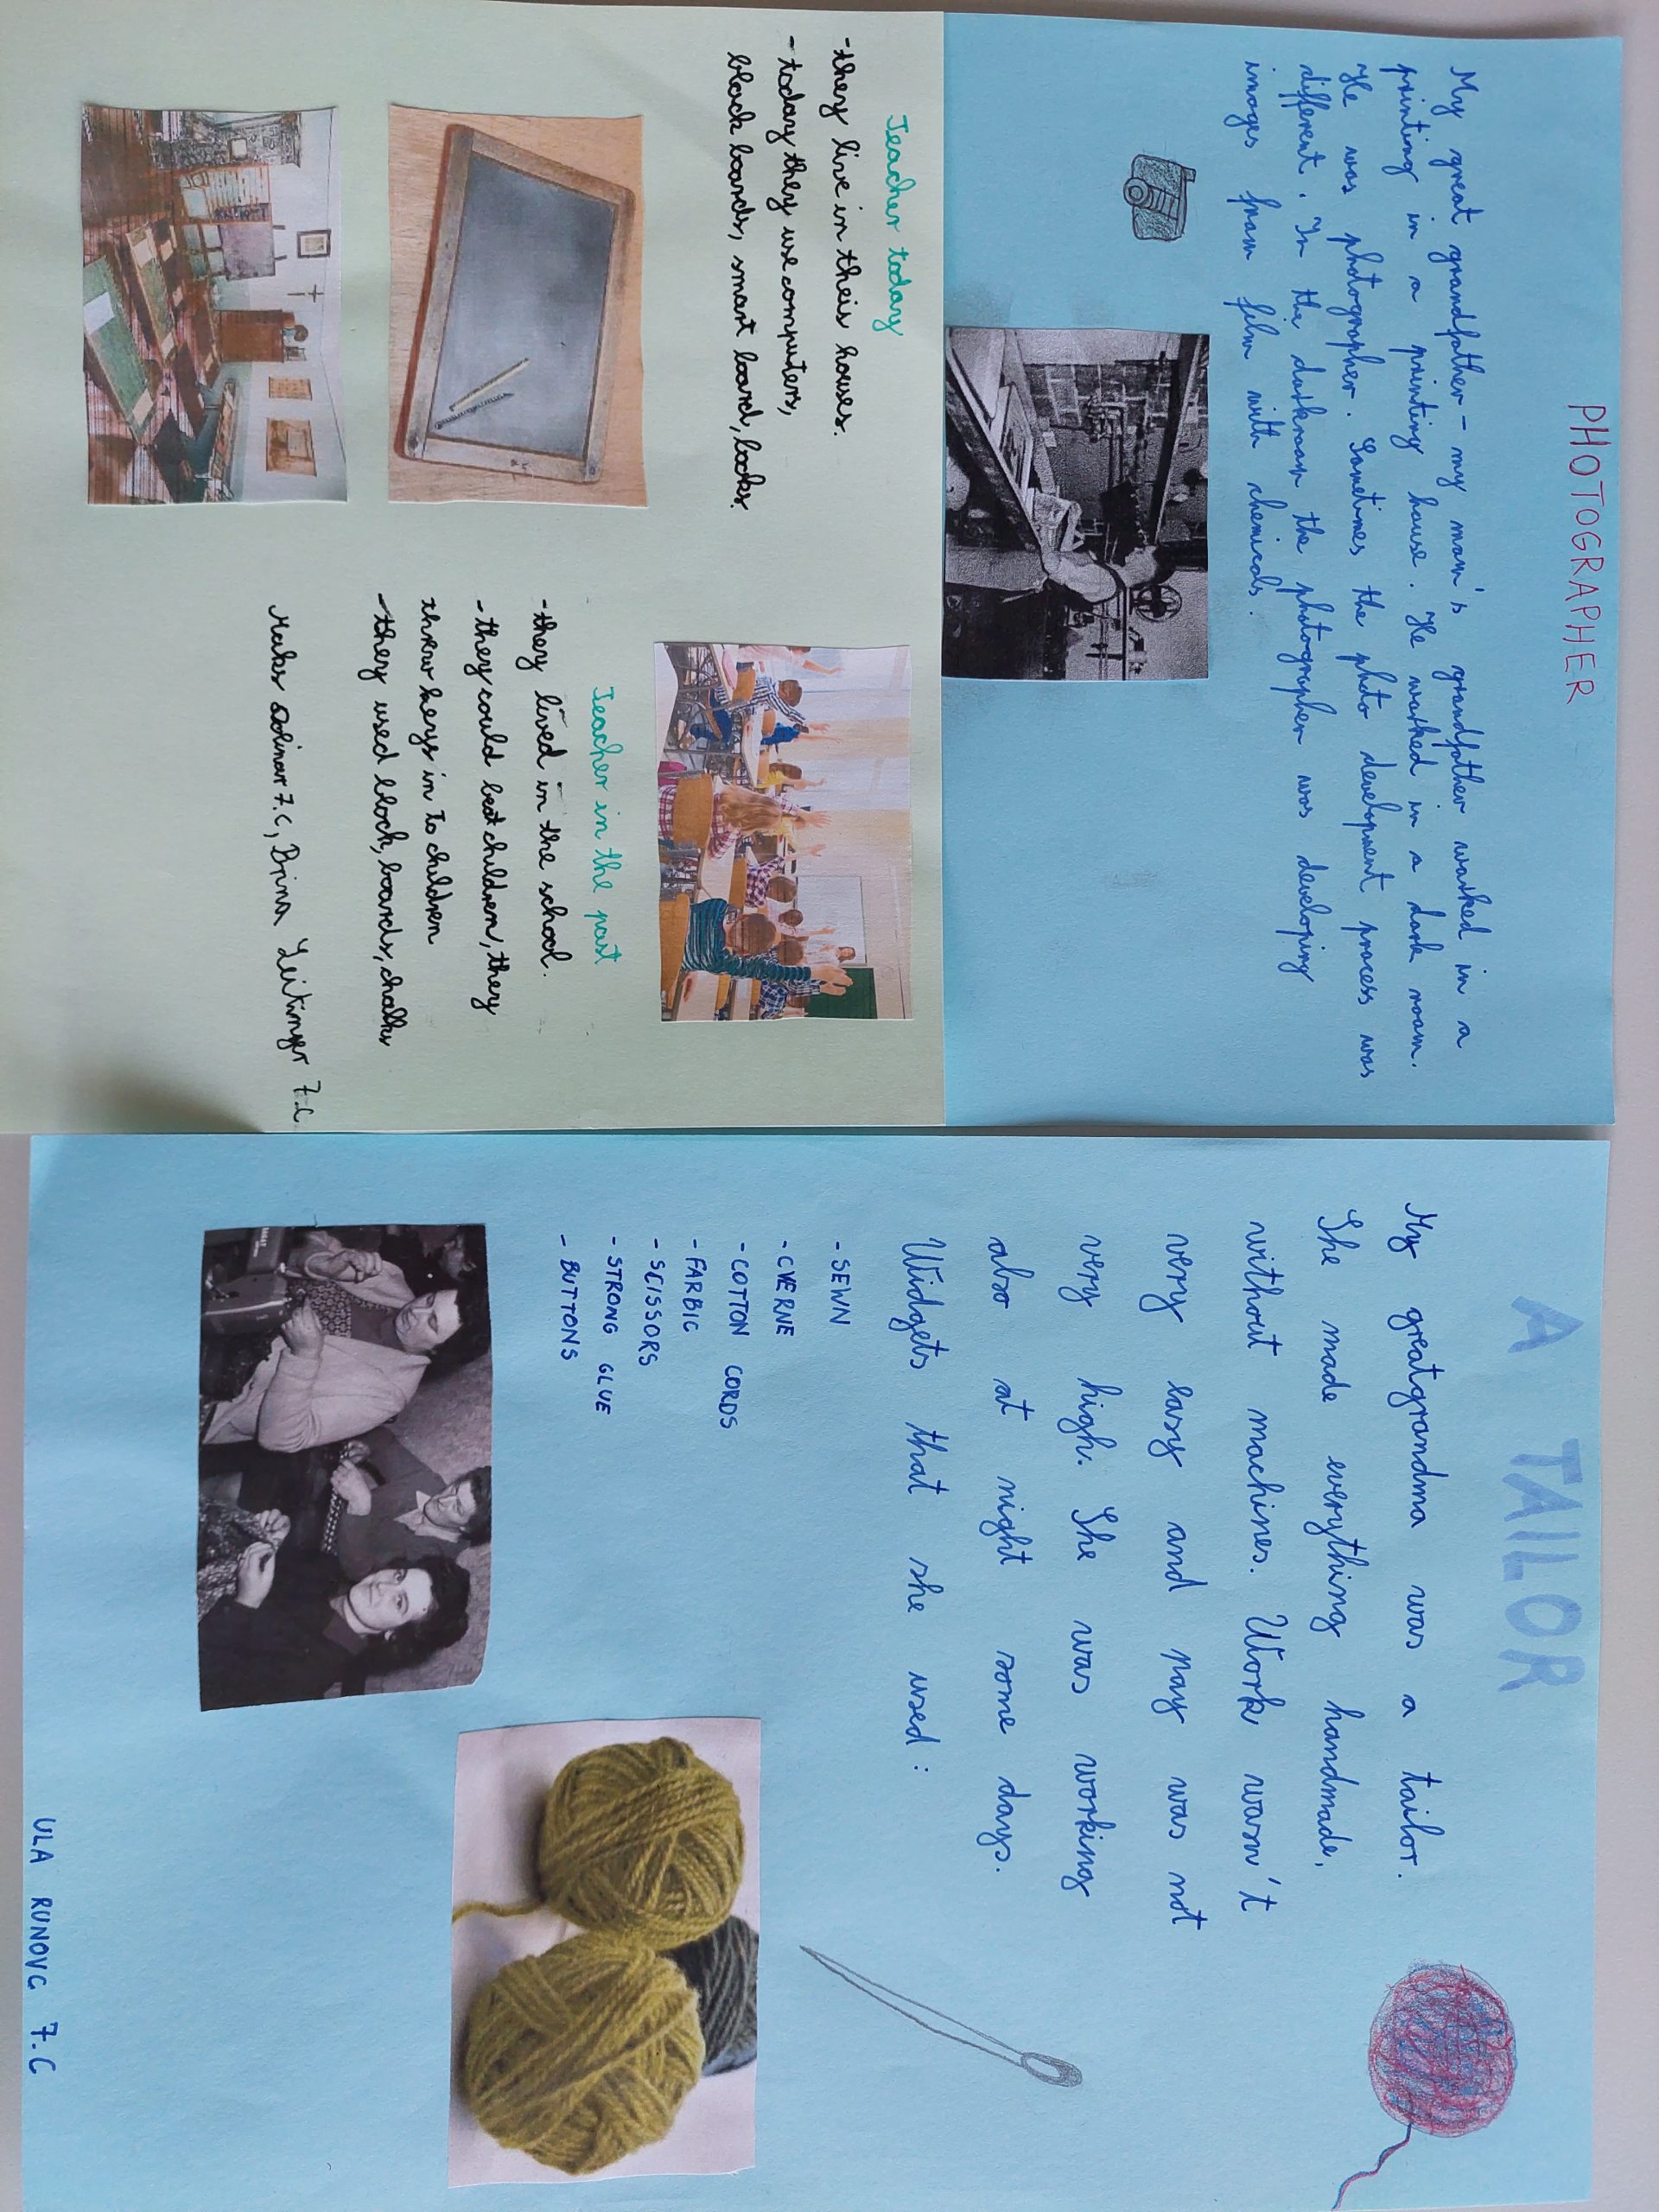 PHOTOGRAPHER
My great grandfather - my mom's grandfather worked in a
printing in a printing house. He worked in a dark room.
He was photographer. Sometimes the photo development process was
different. In the darkroom the photographer was developing
images from film with chemicals.
Teacher today
-they live in theis houses.
-today they use computers,
black boards, smart board, books.
Teacher in the past
-they lived in the school.
-they could beat children, they
threw keys in to children
-they used block, boards, chalks
Maks 7.c, Brina Leitinger 7.c
A TAILOR
My greatgrandma was a tailor.
She made everything handmade,
without machines. Work wasn't
very easy and pay was not
very high. She was working
also at night some days.
Widgets that she used:
-SEWN
-CVERNE
-COTTON CORDS
-FARBIC
-SCISSORS
-STRONG GLUE
-BUTTONS
ULA RUNOVC 7.C